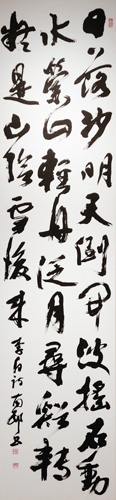 日落沙明天倒開波搖石動
水縈回輕舟泛月尋谿轉
疑是山陰雪後來
李白詩